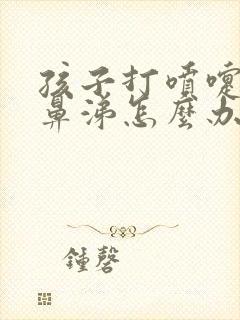 孩子打噴嚏
鼻涕怎麼办
鍾磬